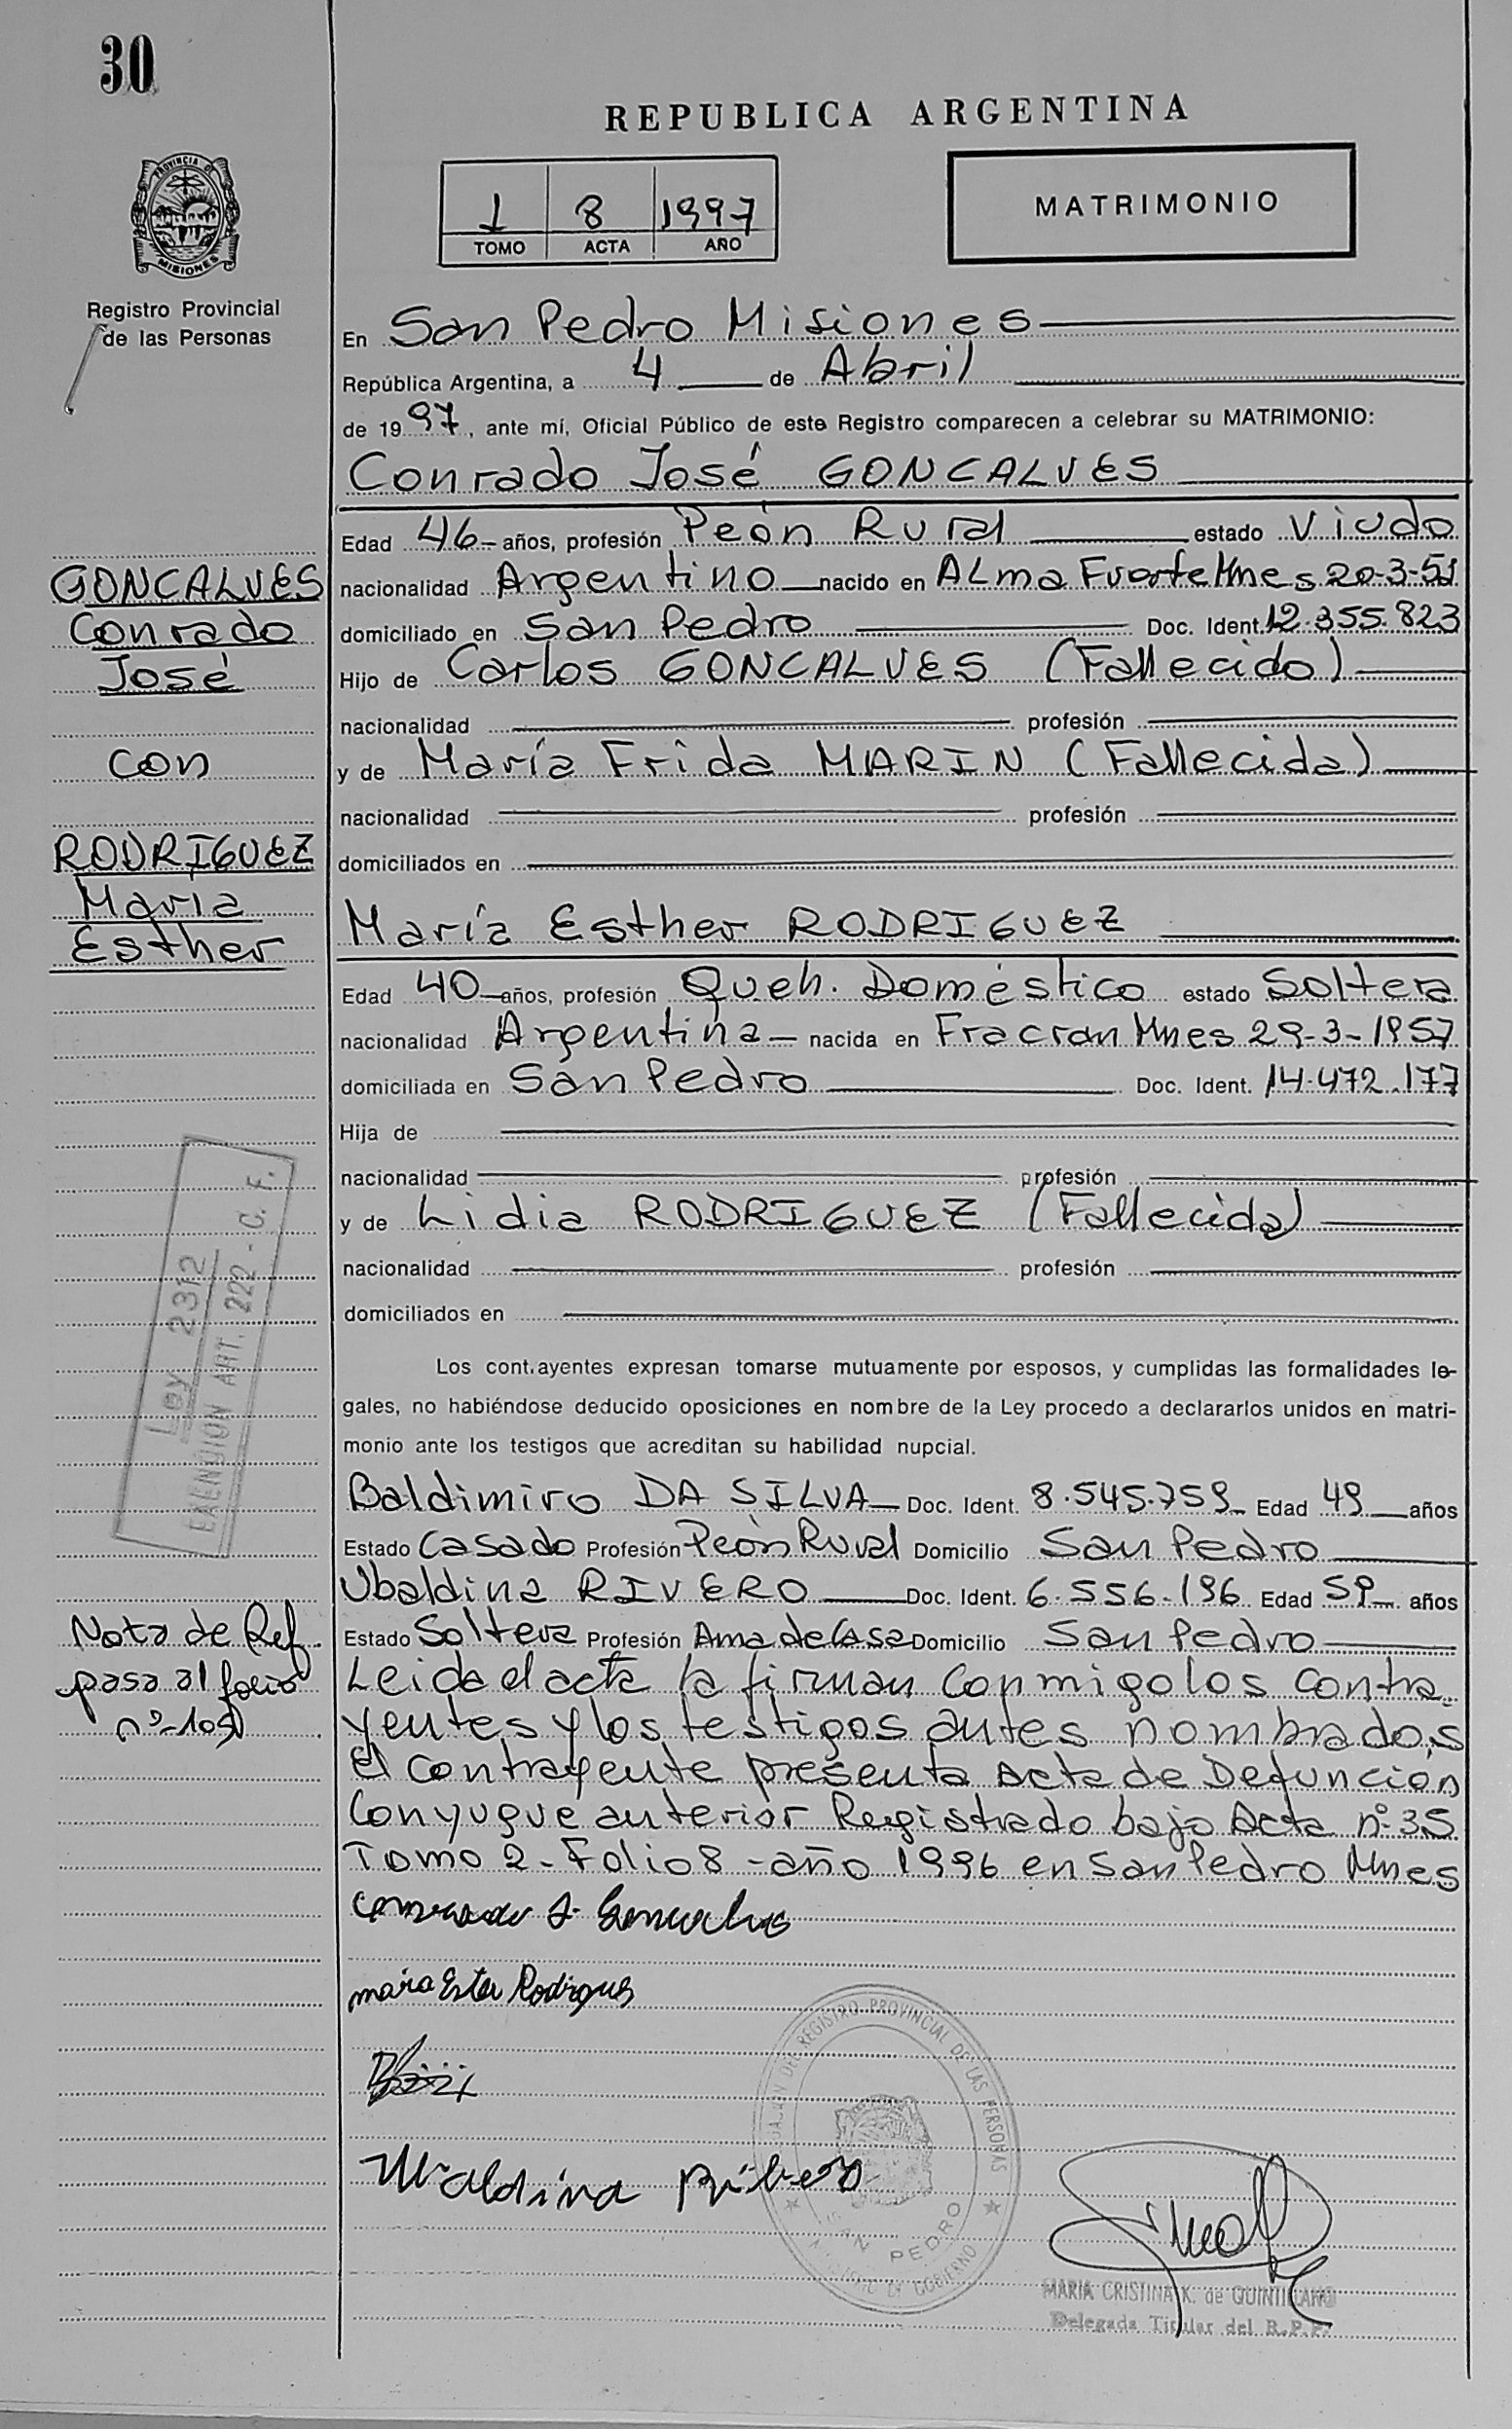 30
REPUBLICA ARGENTINA
PROVINCIA DE
MISIONES
Registro Provincial
de las Personas
1 8 1997
TOMO ACTA AÑO
MATRIMONIO
En San Pedro Misiones
República Argentina, a 4 de Abril
de 1997, ante mí, Oficial Público de este Registro comparecen a celebrar su MATRIMONIO:
Conrado José GONCALVES
Edad 46 años, profesión Peón Rural estado Viudo
nacionalidad Argentino nacido en ALma Fuerte Mnes 20-3-51
domiciliado en San Pedro Doc. Ident. 12.355.823
Hijo de Carlos GONCALVES (Fallecido)
nacionalidad profesión
y de María Frida MARIN (Fallecida)
nacionalidad profesión
domiciliados en
GONCALVES
Conrado
José
con
RODRIGUEZ
María
Esther
María Esther RODRIGUEZ
Edad 40 años, profesión Queh. Doméstico estado Soltera
nacionalidad Argentina nacida en Fracran Mnes 29-3-1957
domiciliada en San Pedro Doc. Ident. 14.472.177
Hija de
nacionalidad profesión
y de Lidia RODRIGUEZ (Fallecida)
nacionalidad profesión
domiciliados en
Ley 2312
EXENCION ART. 222 - C. F.
Los cont.ayentes expresan tomarse mutuamente por esposos, y cumplidas las formalidades le-
gales, no habiéndose deducido oposiciones en nombre de la Ley procedo a declararlos unidos en matri-
monio ante los testigos que acreditan su habilidad nupcial.
Baldimiro DA SILVA Doc. Ident. 8.545.759 Edad 49 años
Estado Casado Profesión Peón Rural Domicilio San Pedro
Ubaldina RIVERO Doc. Ident. 6.556.196 Edad 59 años
Estado Soltera Profesión Ama de Casa Domicilio San Pedro
Nota de Ref.
pasa al folio
nº
Leida el acta la firman conmigo los contra-
yentes y los testigos antes nombrados
el contrayente presenta Acta de Defuncion
Conyugue anterior Registrado bajo Acta nº 35
Tomo 2 - Folio 8 - año 1996 en San Pedro Mnes
maria Ester Rodrigues
DEL REGISTRO PROVINCIAL DE LAS PERSONAS
SAN PEDRO
DE GOBIERNO
MARIA CRISTINA K. de QUINTILLANO
Delegada Titular del R.P.P.